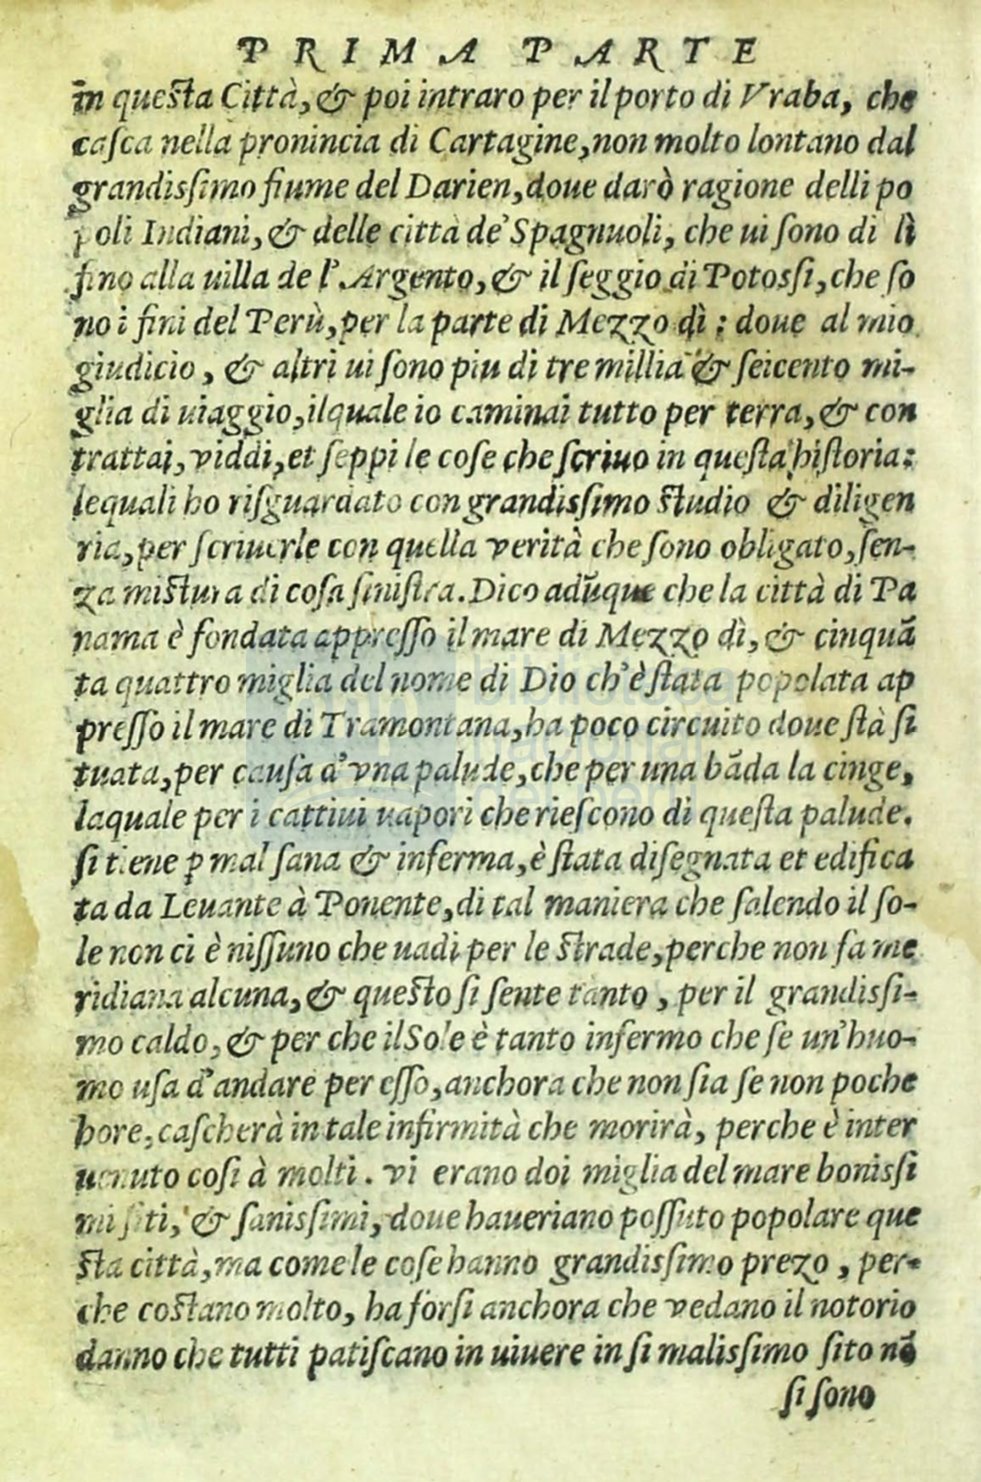 PRIMA PARTE
in questa Città, & poi intraro per il porto di Vraba, che
casca nella pronincia di Cartagine, non molto lontano dal
grandissimo fiume del Darien, doue darò ragione delli po
poli Indiani, & delle città de' Spagnuoli, che ui sono di lì
fino alla uilla de l'Argento, & il seggio di Potossi, che so
no i fini del Perù, per la parte di Mezzo dì: doue al mio
giudicio, & altri ui sono piu di tre millia & seicento mi-
glia di uiaggio, ilquale io caminai tutto per terra, & con
trattai, viddi, et seppi le cose che scriuo in questa historia:
lequali ho risguardato con grandissimo studio & diligen
ria, per scriuerle con quella verità che sono obligato, sen-
za mistura di cosa sinistra. Dico adūque che la città di Pa
nama è fondata appresso il mare di Mezzo dì, & cinquā
ta quattro miglia del nome di Dio ch'è stata popolata ap
presso il mare di Tramontana, ha poco circuito doue stà si
tuata, per causa d'vna palude, che per una bāda la cinge,
laquale per i cattiui uapori che riescono di questa palude.
si tiene p mal sana & inferma, è stata disegnata et edifica
ta da Leuante à Ponente, di tal maniera che salendo il so-
le non ci è nissuno che uadi per le strade, perche non fa me
ridiana alcuna, & questo si sente tanto, per il grandissi-
mo caldo, & per che il Sole è tanto infermo che se un'huo-
mo usa d'andare per esso, anchora che non sia se non poche
hore, cascherà in tale infirmità che morirà, perche è inter
uenuto cosi à molti. vi erano doi miglia del mare bonissi
mi siti, & sanissimi, doue haueriano possuto popolare que
sta città, ma come le cose hanno grandissimo prezo, per-
che costano molto, ha forsi anchora che vedano il notorio
danno che tutti patiscano in uiuere in si malissimo sito nō
si sono
biblioteca
nacional